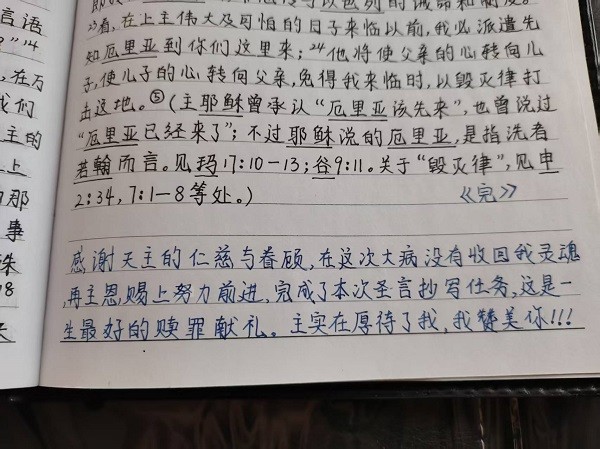 言语
”14
,在万
我们
主的
上
那
事
殊
18
²³看,在上主伟大及可怕的日子来临以前,我必派遣先
知厄里亚到你们这里来;²⁴他将使父亲的心转向儿
子,使儿子的心转向父亲,免得我来临时,以毁灭律打
击这地。⑤(主耶稣曾承认“厄里亚该先来”,也曾说过
“厄里亚已经来了”;不过耶稣说的厄里亚,是指洗者
若翰而言。见玛17:10-13;谷9:11。关于“毁灭律”,见申
2:34,7:1-8等处。) 《完》
感谢天主的仁慈与眷顾,在这次大病没有收回我灵魂
,再主恩赐上努力前进,完成了本次圣言抄写任务,这是一
生最好的赎罪献礼。主实在厚待了我,我赞美你!!!